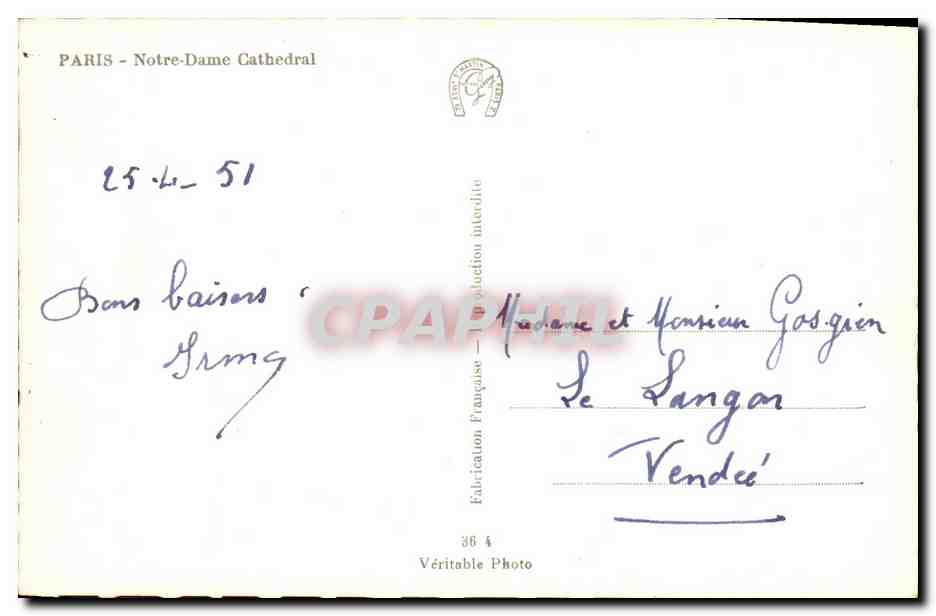 PARIS - Notre-Dame Cathedral
25-4-51
Bons baisers
Irma
Fabrication Française — Reproduction interdite
CPAPHIL
Madame et Monsieur Gosgrien
Le Langon
Vendée
36 4
Véritable Photo